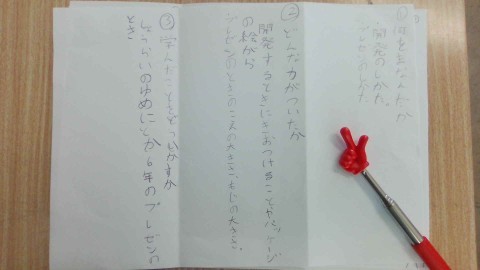 ①何を学んだか
開発のしかた。
プレゼンのしかた
②どんな力がついたか
開発するときにきおつけることやパッケージ
の絵がら
プレゼンのときのこえの大きさ、もじの大きさ。
③学んだことをどういかすか
しょうらいのゆめにとか6年のプレゼンの
とき